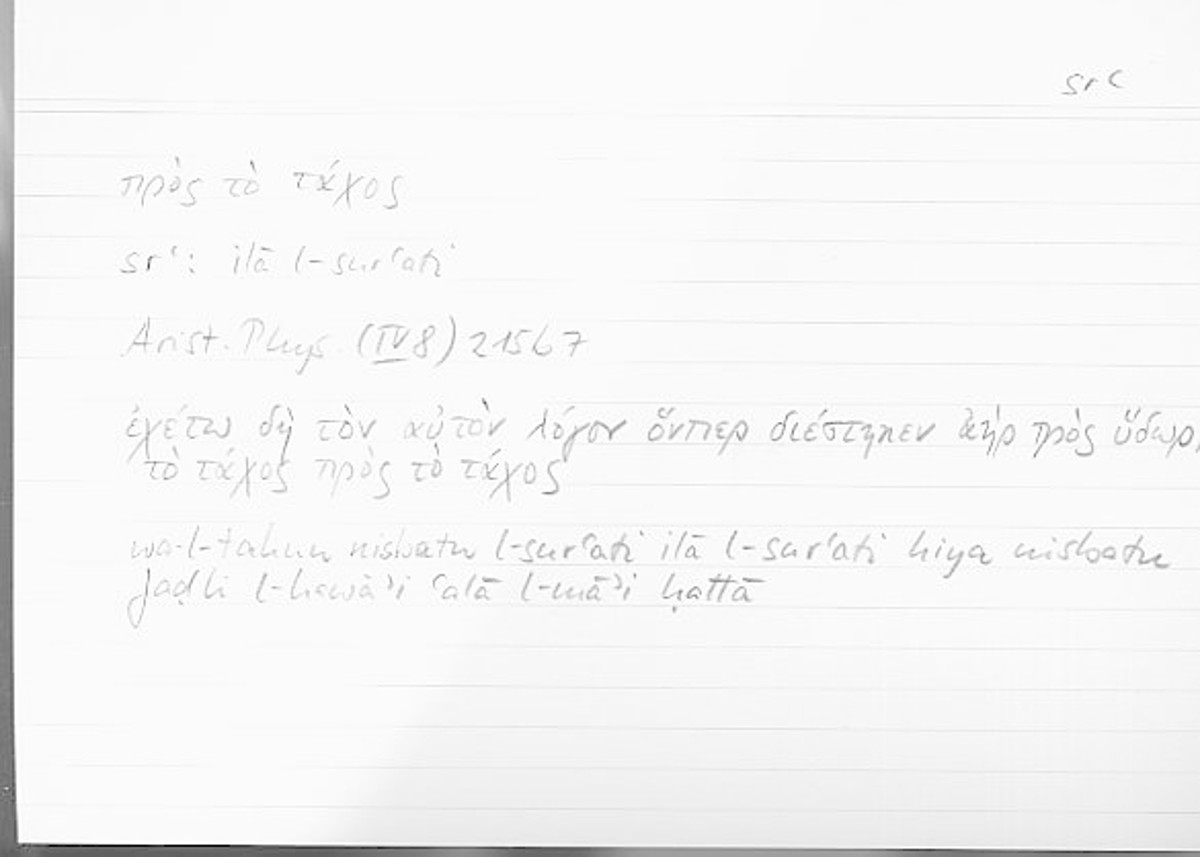 srʿ
πρὸς τὸ τάχος
srʿ: ilā l-surʿati
Arist. Phys. (IV 8) 215b7
ἐχέτω δὴ τὸν αὐτὸν λόγον ὅνπερ διέστηκεν ἀὴρ πρὸς ὕδωρ,
τὸ τάχος πρὸς τὸ τάχος
wa-l-takun nisbatu l-surʿati ilā l-surʿati hiya nisbatu
l-hawāʾi ʿalā l-māʾi ḥattā